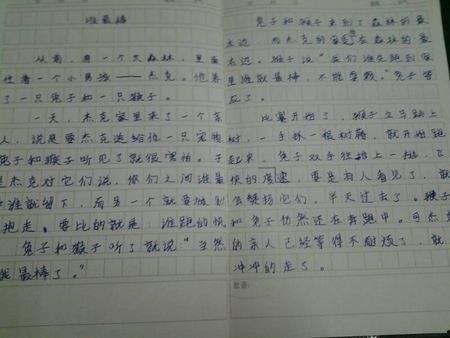 谁最棒
从前，有一个大森林，里面
住着一个小男孩——杰克。他养
了一只兔子和一只猴子。
一天，杰克家里来了一个客
人，说是要杰克送给他一只宠物
兔子和猴子听见了就很害怕。于
是杰克对它们说，你们之间谁最
棒谁就留下，而另一个就要被别
抱走。要比的就是：谁跑的快
兔子和猴子听了就说“当然
我最棒了。”
兔子和猴子来到了森林的最
末边，而杰克的家是在森林的最
末边。猴子说“我们谁先跑到家
里谁就最棒，不能拿数。”兔子答
应了。
比赛开始了，猴子立马跳上
树，一手抓一根树藤，就开始跑
起来。兔子双手往地上一趴，飞
快的奔
要是有人看见了，就
会疑惑它们，半天过去了。猴子
和兔子仍然还在奔跑中。可杰克
的亲人已经等得不耐烦了，就
冲冲的走了。